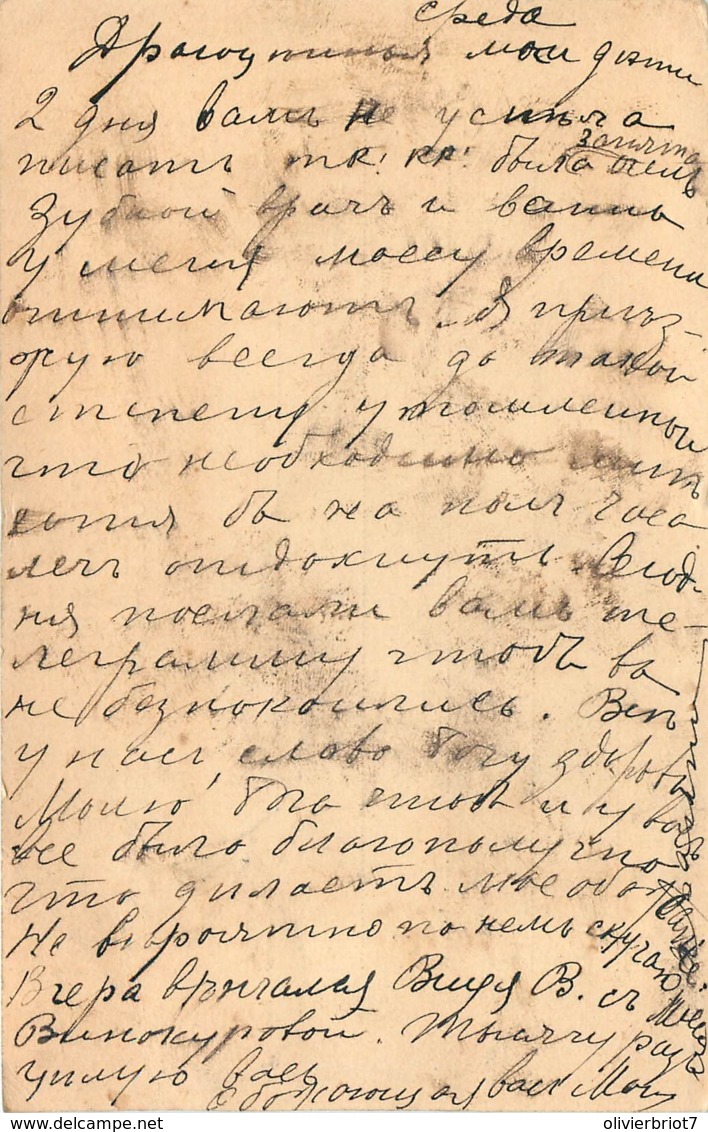 среда
Драгоцѣнныя мои дѣти
2 дня вамъ не успѣла
писать т.к. была очень занята
Зубной врачъ и ванны
у меня массу времени
отнимаютъ. Я пріѣз-
жаю всегда до такой
степени утомленной
что необходимо
хотя бъ на полъ часа
лечь отдохнуть. Сегод-
ня послали вамъ те-
леграмму чтобъ вы
не безпокоились. Всѣ
у насъ, слава Богу здоровы
Молю Бога чтобъ и у васъ
все было благополучно
Что дѣлаетъ мое
Невѣроятно по немъ скучаю
Вчера вѣнчалась Витя В. съ
Винокуровой. Тысячу разъ
цѣлую васъ
обожающая васъ Мам
olivierbriot7